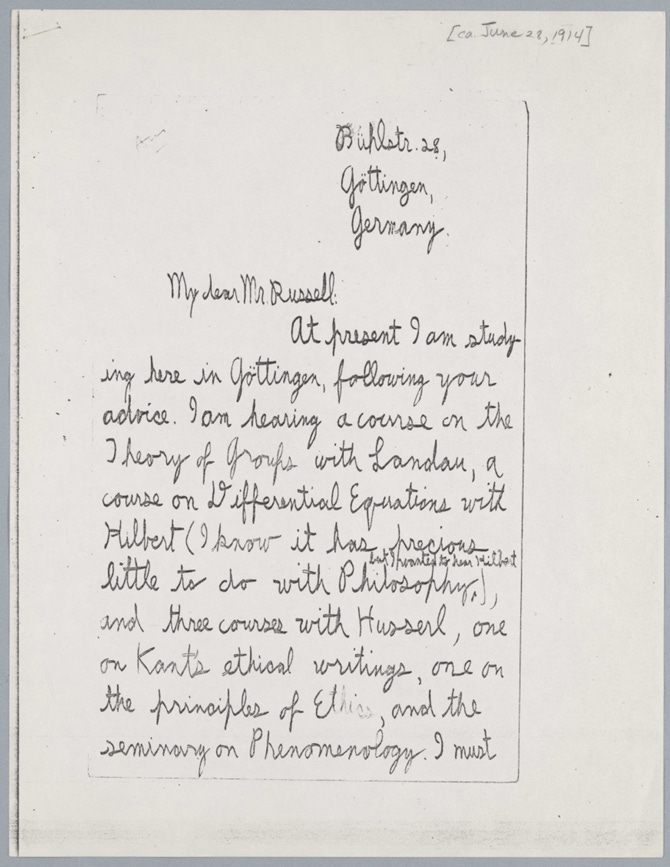 [ca June 28, 1914]
Bühlstr. 28,
Göttingen,
Germany.
My dear Mr. Russell:
At present I am study-
ing here in Göttingen, following your
advice. I am hearing a course on the
Theory of Groups with Landau, a
course on Differential Equations with
Hilbert (I know it has precious
but I wanted to hear Hilbert
little to do with Philosophy,),
and three courses with Husserl, one
on Kant's ethical writings, one on
the principles of Ethics, and the
seminary on Phenomenology. I must